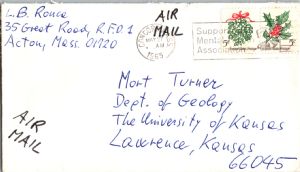 L.B. Ronca
35 Great Road, R.F.D. 1
Acton, Mass. 01720
AIR
MAIL
Support
Mental
Association
Mort Turner
Dept. of Geology
The University of Kansas
Lawrence, Kansas
66045
AIR
MAIL